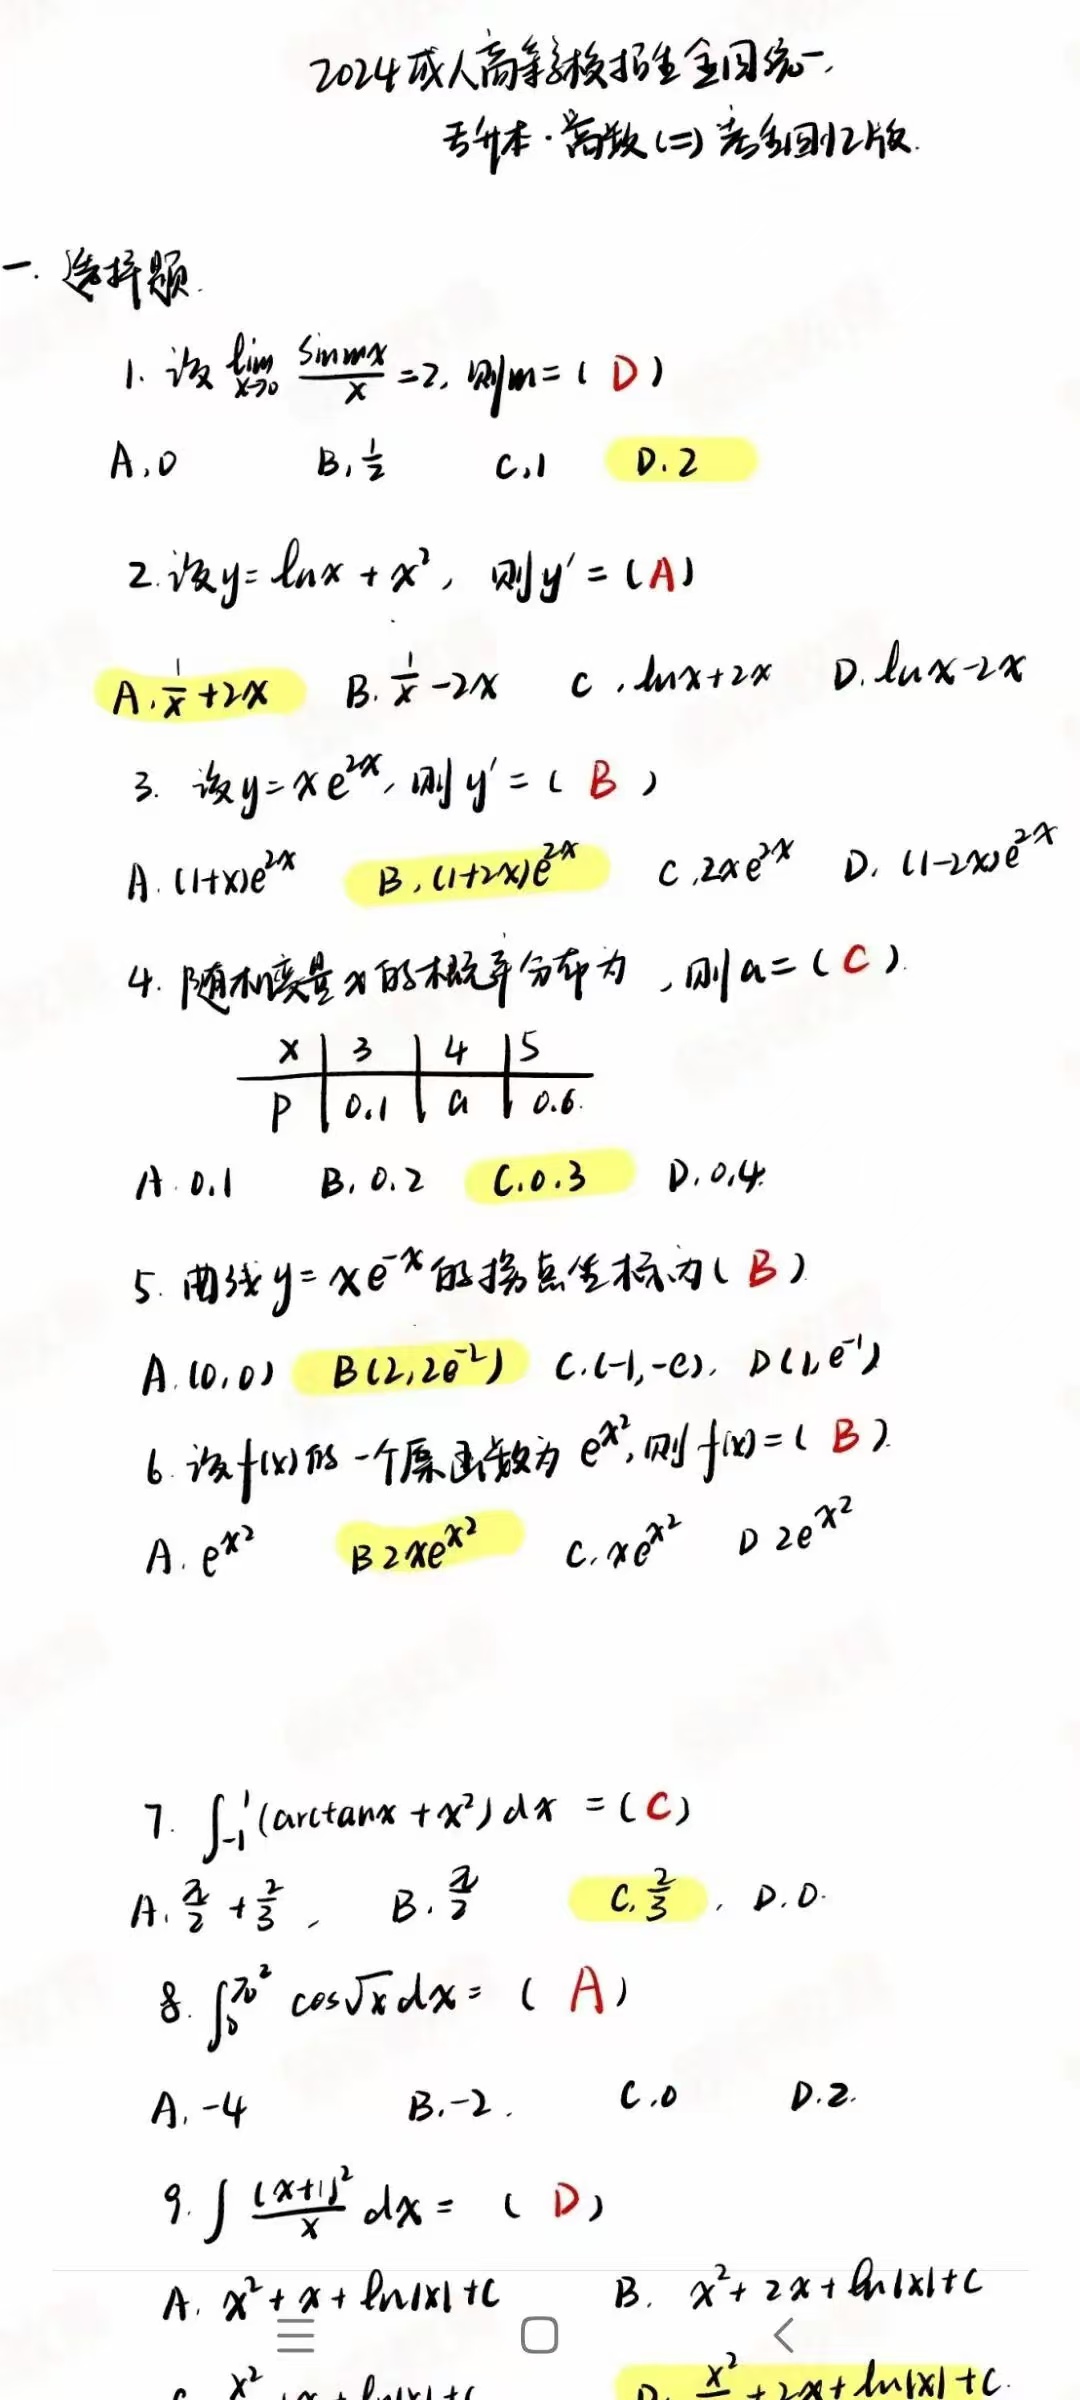 2024成人高等学校招生全国统一
专升本·高数(二)考生回忆版.
一. 选择题.
1. 设 lim x→0 sinmx/x =2, 则m=( D )
A. 0 B. 1/2 C. 1 D. 2
2. 设y=lnx+x², 则y′=(A)
A. 1/x+2x B. 1/x-2x C. lnx+2x D. lnx-2x
3. 设y=xe^{2x}, 则y′=( B )
A. (1+x)e^{2x} B. (1+2x)e^{2x} C. 2xe^{2x} D. (1-2x)e^{2x}
4. 随机变量x的概率分布为, 则a=( C ).
x 3 4 5
P 0.1 a 0.6.
A. 0.1 B. 0.2 C. 0.3 D. 0.4.
5. 曲线y=xe^{-x}的拐点坐标为( B )
A. (0,0) B(2,2e^{-2}) C. (-1,-e). D(1,e^{-1})
6. 设f(x)的一个原函数为e^{x²}, 则f(x)=( B ).
A. e^{x²} B 2xe^{x²} C. xe^{x²} D 2e^{x²}
7. ∫_{-1}^{1}(arctanx+x²)dx =( C )
A. π/2+2/3, B. π/2 C. 2/3. D. 0.
8. ∫_{0}^{π²} cos√x dx= ( A )
A. -4 B. -2. C. 0 D. 2.
9. ∫ (x+1)²/x dx= ( D )
A. x²+x+ln|x|+C B. x²+2x+ln|x|+C
D. x²/ +2x+ln|x|+C.